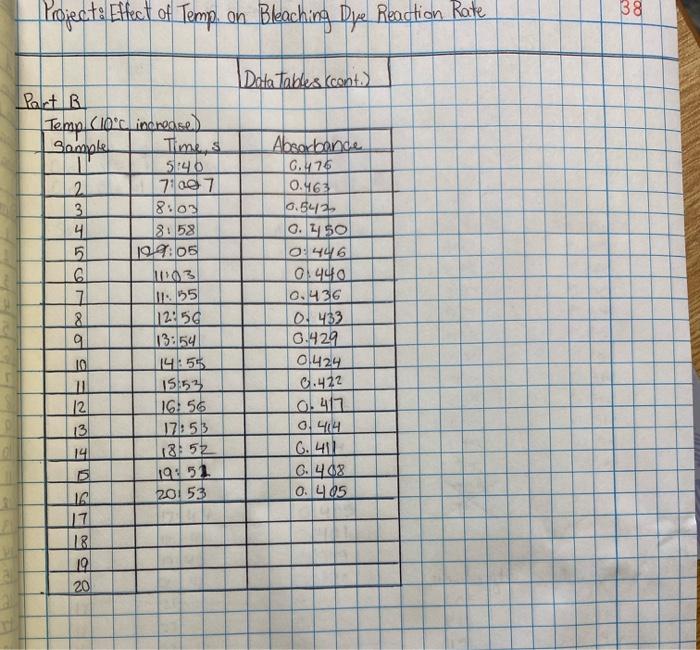 Project: Effect of Temp. on Bleaching Dye Reaction Rate 38
Data Tables (cont.)
Part B
Temp (10°C increase)
Sample Time, s Absorbance
1 5:40 0.476
2 7:07 0.463
3 8:03 0.542
4 8:58 0.450
5 :05 0.446
6 11:03 0.440
7 11:55 0.436
8 12:56 0.433
9 13:54 0.429
10 14:55 0.424
11 15:53 0.422
12 16:56 0.417
13 17:53 0.414
14 18:52 0.411
15 19:51 0.408
16 20:53 0.405
17
18
19
20